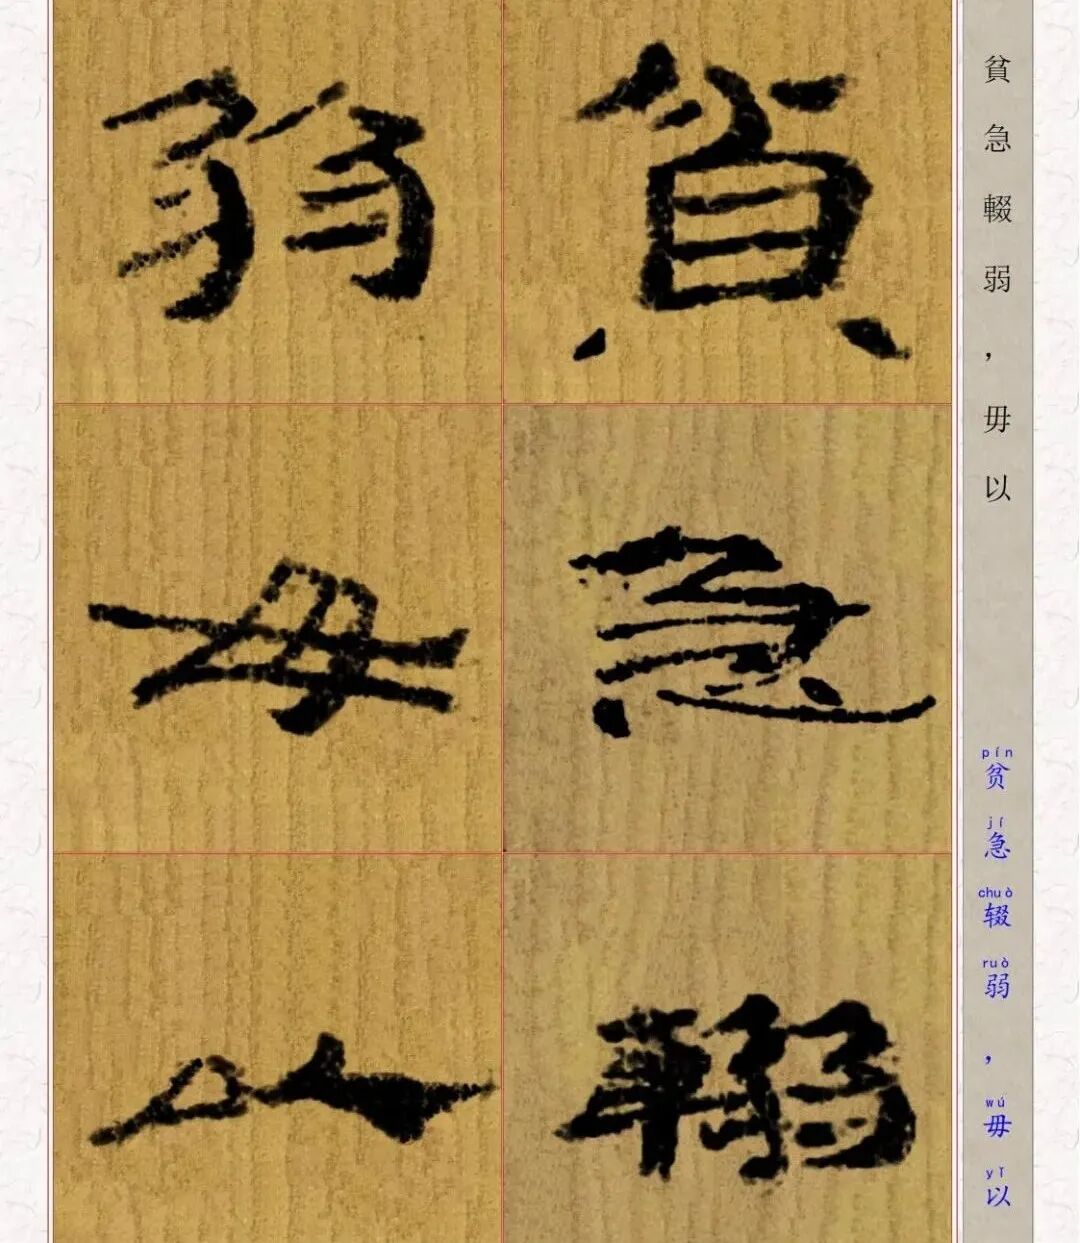 貧急輟弱，毋以
pín jí chuò ruò wú yǐ
贫急辍弱，毋以
貧急輟
弱毋以